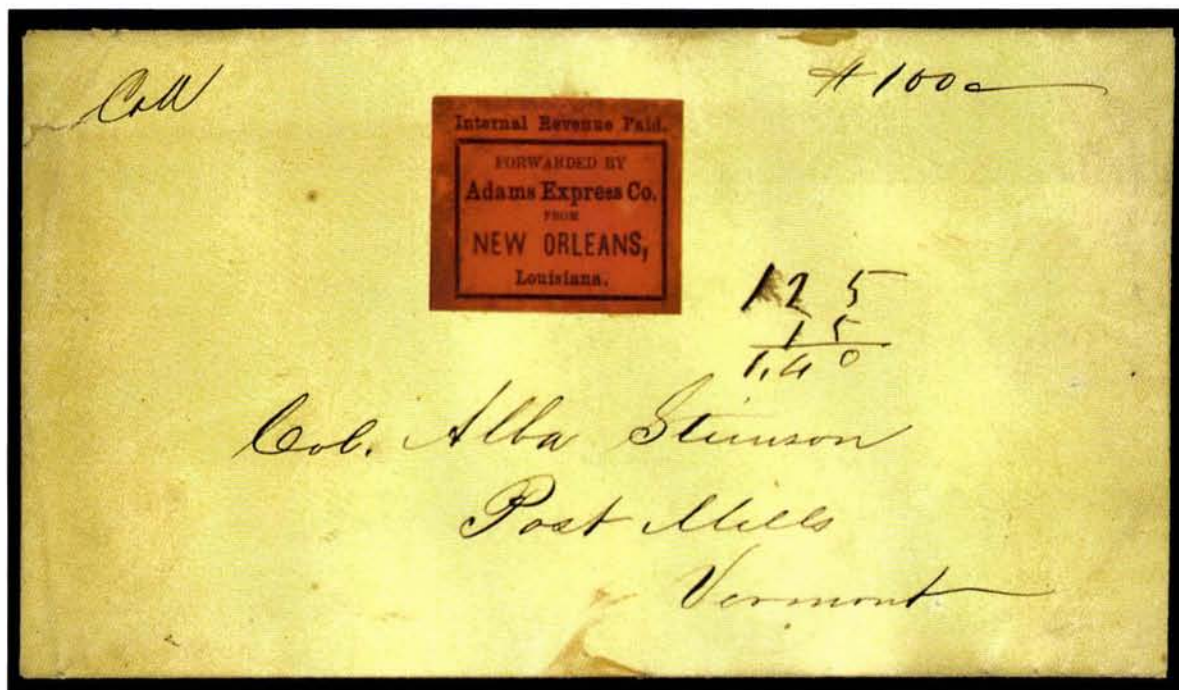 Coll
$100
Internal Revenue Paid.
FORWARDED BY
Adams Express Co.
FROM
NEW ORLEANS,
Louisiana.
125
15
1,40
Col. Alba Stimson
Post Mills
Vermont